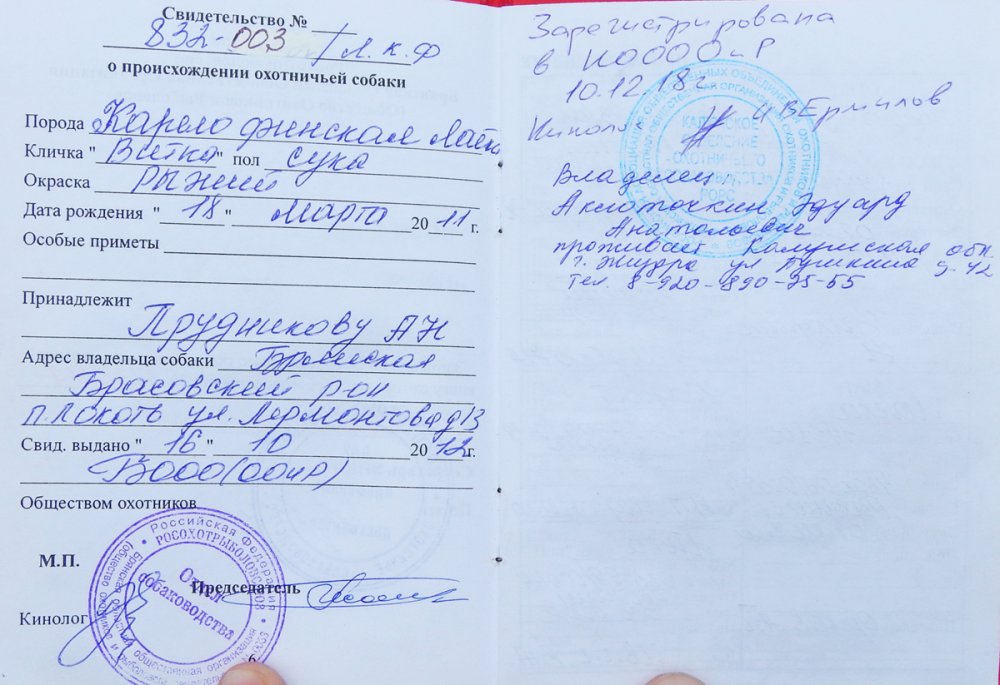 Свидетельство №
832-003/Л.К.Ф
о происхождении охотничьей собаки
Порода Карело финская Лайка
Кличка " Витка " пол сука
Окраска рыжий
Дата рождения " 18 " Марта 2011 г.
Особые приметы
Принадлежит
Прудникову АН
Адрес владельца собаки Брянская
Брасовский рон
п Локоть ул. Лермонтова д 13
Свид. выдано " 16 " 10 2012г.
ВООО(ООиР)
Обществом охотников
М.П.
Председатель
Кинолог
Российская Федерация
РОСОХОТРЫБОЛОВСОЮЗ
Отдел
собаководства
6
Зарегистрирована
в КООООиР
10.12.18г
Кинолог И В Ермилов
Владелец
Эдуард
Анатольевич
проживает Калужская обл.
г. Жиздра ул Пушкина д. 42
тел. 8-920-890-25-55